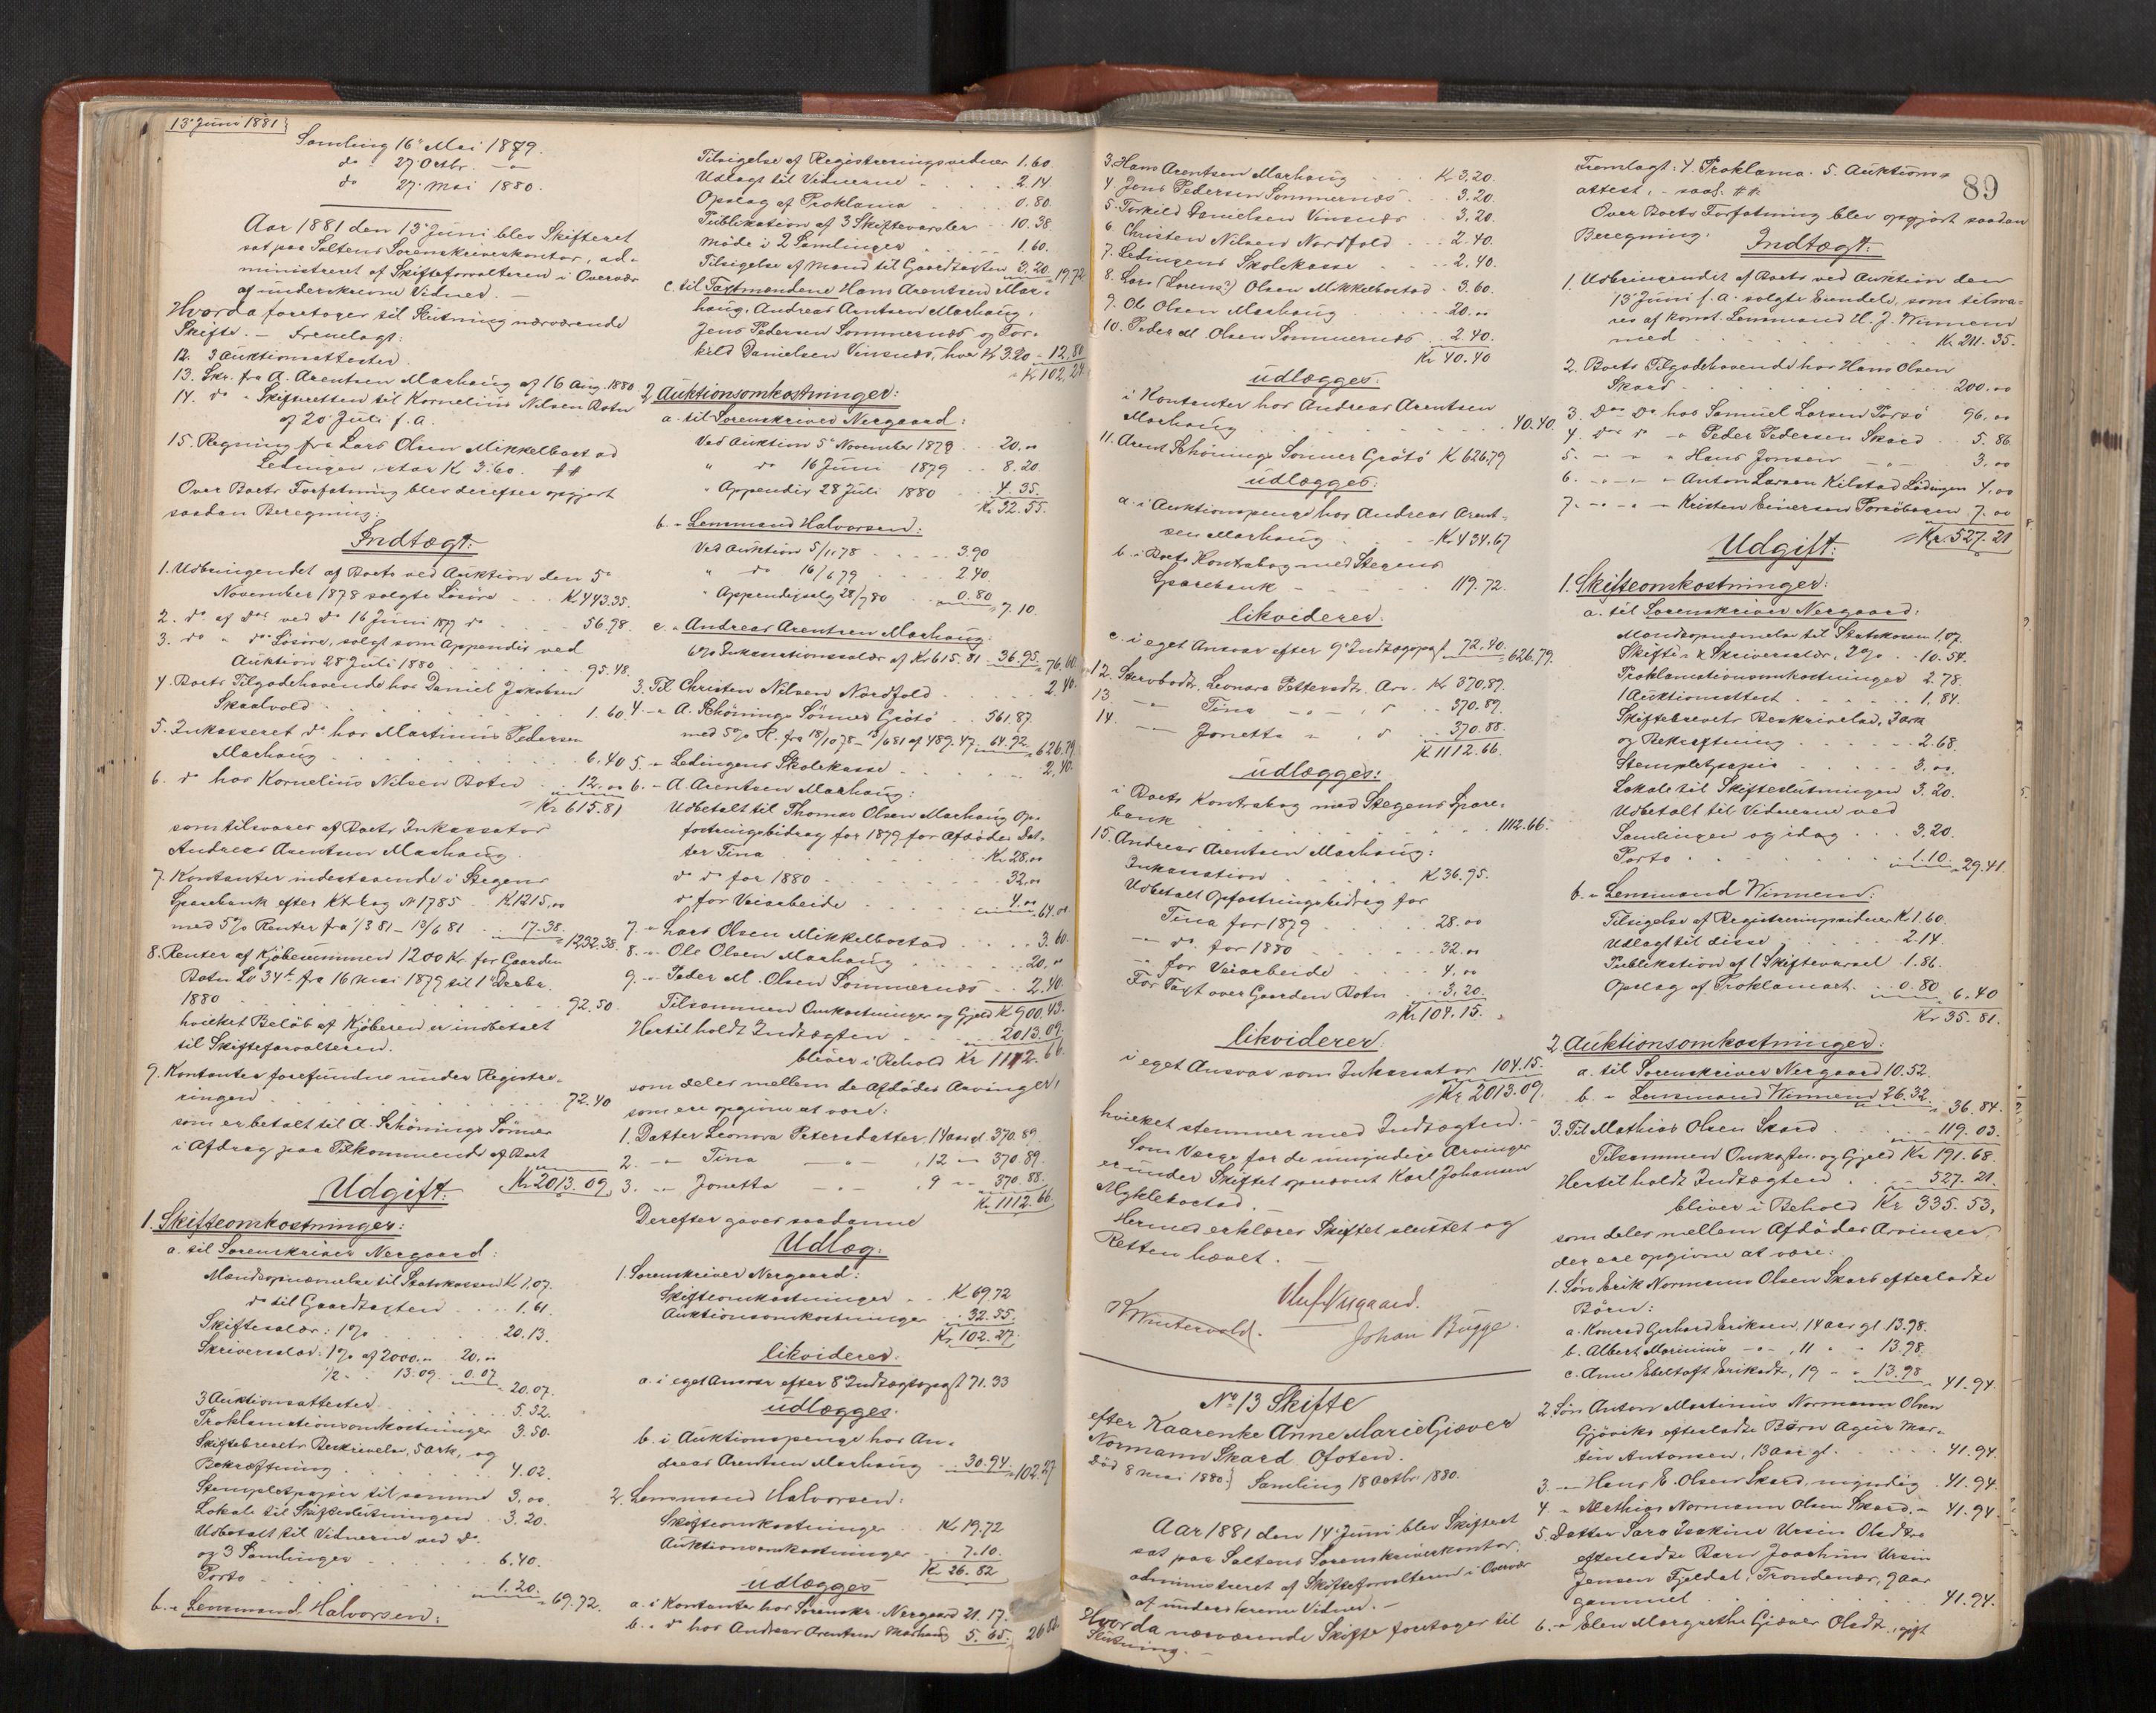 13' Juni 1881
Samling 16' Mai 1879.
do 27' Octbr. - "
do 27' Mai 1880.
Aar 1881 den 13' Juni blev Skifteret
sat paa Saltens Sorenskriverkontor, ad-
ministreret af Skifteforvalteren i Overvær
af underskrevne Vidner. -
Hvorda foretoges til Slutning nærværende
Skifte. - Fremlagt:
12. 3 Auktionsattester.
13. Skr. fra A. Arentsen Marhaug af 16 Aug. 1880
14. do " Skifteretten til Kornelius Nilsen Botn
af 20' Juli f. a.
15. Regning fra Lars Olsen Mikkelbostad
Ledingen, stor K 3.60. ##
Over Boets Forfatning blev derefter opgjort
saadan Beregning:
Indtægt:
1. Udbringendet af Boets ved Auktion den 5'
November 1878 solgte Løsøre . . K 443.35.
2. do af dets ved do 16 Juni 1879 do . . 56.98.
3. do " do Løsøre, solgt som Appendix ved
Auktion 28' Juli 1880 . . . . 95.48.
4. Boets Tilgodehavende hos Daniel Jakobsen
Skaalvold . . . . 1.60.
5. Inkasseret do hos Martinus Pedersen
Marhaug . . . . 6.40
6. do hos Kornelius Nilsen Botn . . 12.00
Kr 615.81
som tilsvares af Boets Inkassator
Andreas Arentsen Marhaug.
7. Kontanter indestaaende i Stegens
Sparebank efter Ktbog No 1785 . K 1215.00
med 5% Renter fra 1/3 81 - 13/6 81 . . 17.38. = 1232.38.
8. Renter af Kjøbesummen 1200 Kr. for Gaarden
Botn Lo 34 fra 16 Mai 1879 til 1' Decbr.
1880 . . . . 92.50
hvilket Beløb af Kjøberen er indbetalt
til Skifteforvalteren.
9. Kontanter forefundne under Registre-
ringen . . . . 72.40
som er betalt til A. Schönings Sønner
i Afdrag paa Tilkommende af Boet
Kr 2013.09.
Udgift:
1. Skifteomkostninger:
a. til Sorenskriver Nergaard:
Mandsopnævnelse til Statskassen K 1.07.
do til Gaardtaxten . . 1.61.
Skiftesalær: 1% . . . . 20.13.
Skriversalær: 1% af 2000.00 20.00
1/2 - 13.09 . . 0.07 = 20.07.
3 Auktionsattester . . . . 5.52.
Proklamationsomkostninger 3.50.
Skiftebrevets Beskrivelse, 5 ark, og
Bekræftning . . . . 4.02.
Stempletpapir til samme 3.00.
Lokale til Skifteslutningen . 3.20.
Udbetalt til Vidnerne ved do.
og 3 Samlinger . . . . 6.40.
Porto . . . . 1.20. = 69.72.
b. " Lensmand Halvorsen:
Tilsigelse af Registreringsvidner 1.60.
Udlagt til Vidnerne . . . . 2.14.
Opslag af Proklama . . . . 0.80.
Publikation af 3 Skiftevarsler . . 10.38.
Møde i 2 Samlinger . . . . 1.60.
Tilsigelse af Mænd til Gaardtaxten 3.20 = 19.72
c. til Taxtmændene Hans Arentsen Mar-
haug, Andreas Arentsen Marhaug,
Jens Pedersen Sommernæs og Tor-
kild Danielsen Vinsnæs, hver K 3.20 = 12.80
Kr 102.24
2. Auktionsomkostninger:
a. til Sorenskriver Nergaard:
Ved Auktion 5' November 1878 . . 20.00
" do 16 Juni 1879 . . 8.20.
" Appendix 28 Juli 1880 . . 4.35.
Kr 32.55.
b. " Lensmand Halvorsen:
Ved Auktion 5/11 78 . . . . 3.90
" do 16/6 79 . . . . 2.40.
" Appendixsalg 28/7 80 . . 0.80 = 7.10.
c. " Andreas Arentsen Marhaug:
6% Inkassationssalær af Kr 615.81 . 36.95 = 76.60
3. Til Christen Nilsen Nordfold . . . . 2.40.
4. " A. Schönings Sønner Grötö . . 561.87.
med 5% R. fra 18/10 78 - 13/6 81 af 489.47. 64.92 = 626.79
5. " Ledingens Skolekasse . . . . 2.40.
6. " A Arentsen Marhaug:
Udbetalt til Thomas Olsen Marhaug Op-
fostringsbidrag for 1879 for Afdødes Dat-
ter Tina . . . . Kr 28.00
do do for 1880 . . . . 32.00
do for Veiarbeide . . . . 4.00 = 64.00.
7. " Lars Olsen Mikkelbostad . . . . 3.60.
8. " Ole Olsen Marhaug . . . . 20.00
9. " Peder M. Olsen Sommernæs . . 2.40.
Tilsammen Omkostninger og Gjeld K 900.43.
Hertil holdt Indtægten . . . . 2013.09.
bliver i Behold Kr 1112.66.
som deles mellem de Afdødes Arvinger,
som ere opgivne at være:
1. Datter Leonora Petersdatter, 14 aar gl. 370.89.
2. -"- Tina -"- , 12 " 370.89.
3. -"- Jonetta -"- , 9 " 370.88.
Kr 1112.66.
Derefter gaves saadanne
Udlæg:
1. Sorenskriver Nergaard:
Skifteomkostninger . . K 69.72
Auktionsomkostninger . . 32.55.
Kr. 102.27.
likviderer:
a. i eget Ansvar efter 8' Indtægtspost 71.33
udlægges:
b. i Auktionspenge hos An-
dreas Arentsen Marhaug . . 30.94. = 102.27
2. Lensmand Halvorsen:
Skifteomkostninger . . Kr 19.72
Auktionsomkostninger . . 7.10.
Kr 26.82
udlægges
a. i Kontanter hos Sorenskr. Nergaard 21.17.
b. " do hos Andreas Arentsen Marhaug 5.65. 26.82.
3. Hans Arentsen Marhaug . . . Kr 3.20.
4. Jens Pedersen Sommernæs . . 3.20.
5. Torkild Danielsen Vinsnæs . . 3.20.
6. Christen Nilsen Nordfold . . . 2.40.
7. Ledingens Skolekasse . . . 2.40.
8. Lars (Lorens?) Olsen Mikkelbostad . 3.60.
9. Ole Olsen Marhaug . . . . 20.00
10. Peder M. Olsen Sommernæs . . 2.40.
Kr 40.40
udlægges:
i Kontanter hos Andreas Arentsen
Marhaug . . . . 40.40
11. Arent Schönings Sønner Grötö K 626.79
udlægges:
a. i Auktionspenge hos Andreas Arent-
sen Marhaug . . . . K 434.67
b. i Boets Kontrabog med Stegens
Sparebank . . . . 119.72.
likviderer:
c. i eget Ansvar efter 9' Indtægtspost 72.40. = 626.79.
12. Stervbodtr. Leonora Pettersdtr. Arv. Kr 370.89.
13. -"- Tina -"- 370.89.
14. -"- Jonetta -"- 370.88.
K 1112.66.
udlægges:
i Boets Kontrabog med Stegens Spare-
bank . . . . 1112.66.
15. Andreas Arentsen Marhaug:
Inkassation . . . . K 36.95.
Udbetalt Opfostringsbidrag for
Tina for 1879 . . . . 28.00
-"- do. for 1880 . . . . 32.00
-"- for Veiarbeide . . . . 4.00
For Taxt over Gaarden Botn . . 3.20.
Kr 104.15.
likviderer:
i eget Ansvar som Inkassator 104.15.
Kr 2013.09.
hvilket stemmer med Indtægten. -
Som Værge for de umyndige Arvinger
er under Skiftet opnævnt Karl Johansen
Myklebostad.
Hermed erklæres Skiftet sluttet og
Retten hævet. -
Oluf Nergaard.
Johan Bugge.
No 13 Skifte
efter Kaarenke Anne Marie Giæver
Normann Skard. Ofoten.
Død 8 Mai 1880. } Samling 18 Octbr 1880.
Aar 1881 den 14' Juni blev Skifteret
sat paa Saltens Sorenskriverkontor,
administreret af Skifteforvalteren i Overvær
af underskrevne Vidner. -
Hvorda nærværende Skifte foretoges til
Slutning. -
89
Fremlagt: 4. Proklama. 5. Auktions-
attest, - saal. ##.
Over Boets Forfatning blev opgjort saadan
Beregning:
Indtægt:
1. Udbringendet af Boets ved Auktion den
13' Juni f. a. solgte Eiendele, som tilsva-
res af konst. Lensmand H. J. Winnem
med . . . . Kr. 211.35.
2. Boets Tilgodehavende hos Hans Olsen
Skard . . . . 200.00
3. Dets Do hos Samuel Larsen Torsö 96.00
4. do do " Peder Pedersen Skard . . 5.86.
5. " " " Hans Jonsen -"- . . 3.00
6. " " " Anton Larsen Kilstad Lödingen 4.00
7. " " " Kristen Einersen Torsöbogen . 7.00
Kr. 527.21
Udgift:
1. Skifteomkostninger:
a. til Sorenskriver Nergaard:
Mandsopnævnelse til Statskassen 1.07.
Skifte- & Skriversalær, 2% . . 10.54.
Proklamationsomkostninger 2.78.
1 Auktionsattest . . . . 1.84.
Skiftebrevets Beskrivelse, 3 ark
og Bekræftning . . . . 2.68.
Stempletpapir . . . . 3.00.
Lokale til Skifteslutningen 3.20.
Udbetalt til Vidnerne ved
Samlingen og idag . . . 3.20.
Porto . . . . 1.10. = 29.41.
b. " Lensmand Winnem:
Tilsigelse af Registreringsvidner K 1.60.
Udlagt til disse . . . . 2.14.
Publikation af 1 Skiftevarsel . 1.86.
Opslag af Proklamaet . . 0.80 = 6.40
Kr 35.81.
2. Auktionsomkostninger:
a. til Sorenskriver Nergaard 10.52.
b. " Lensmand Winnem 26.32. = 36.84.
3. Til Mathias Olsen Skard . . . 119.03.
Tilsammen Omkostn. og Gjeld Kr 191.68.
Hertil holdt Indtægten . . . 527.21.
bliver i Behold Kr 335.53,
som deles mellem Afdødes Arvinger,
der ere opgivne at være:
1. Søn Erik Normann Olsen Skards efterladte
Børn:
a. Konrad Gerhard Eriksen, 14 aar gl. 13.98.
b. Albert Marinius -"- , 11 " " 13.98.
c. Anne Ebeltoft Eriksdtr, 19 " " 13.98 = 41.94.
2. Søn Anton Martinus Normann Olsen
Gjøviks efterladte Barn Ageus Mar-
tin Antonsen, 13 aar gl. . . . 41.94.
3. " Hans E. Olsen Skard, myndig . 41.94.
4. " Mathias Normann Olsen Skard, " 41.94.
5. Datter Sara Joakine Ursin Olsdtrs
efterladte Barn Joachim Ursin
Jensen Fjeldal, Trondenæs, 9 aar
gammel . . . . 41.94.
6. " Elen Margrethe Giæver Olsdtr., gift